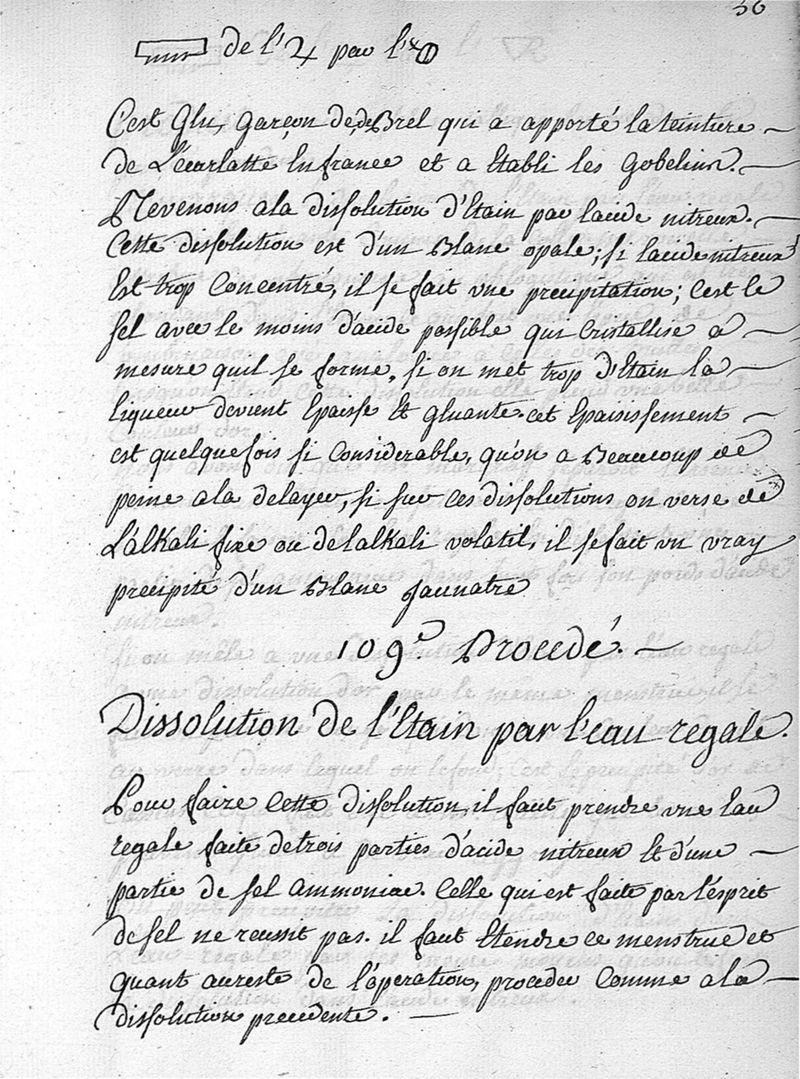 36
de l'♃ par l'
C'est Glu, Garçon de de Brel qui a apporté la teinture
de L'ecarlatte En france et a Etabli les Gobelins.
Revenons a la dissolution d'Etain par lacide nitreux.
Cette dissolution est d'un Blanc opale; si lacide nitreux
Est trop Concentré, il se fait une precipitation; C'est le
sel avec le moins d'acide possible qui Cristallise a
mesure quil se forme, si on met trop d'Etain la
liqueur devient Epaisse Et gluante. cet Epaississement
est quelquefois si Considerable, qu'on a Beaucoup de
peine a la delayer, si sur ces dissolutions on verse de
L'alKali fixe ou de lalkali volatil, il se fait un vray
precipité d'un Blanc Jaunatre
109e Procedé.
Dissolution de l'Etain par l'eau regale.
Pour faire Cette dissolution, il faut prendre une Eau
regale faite de trois parties d'acide nitreux Et d'une
partie de sel ammoniac. Celle qui est faite par l'esprit
de sel ne reussit pas. il faut Etendre ce menstrue et
quant au reste de l'operation, proceder Comme a la
dissolution precedente.